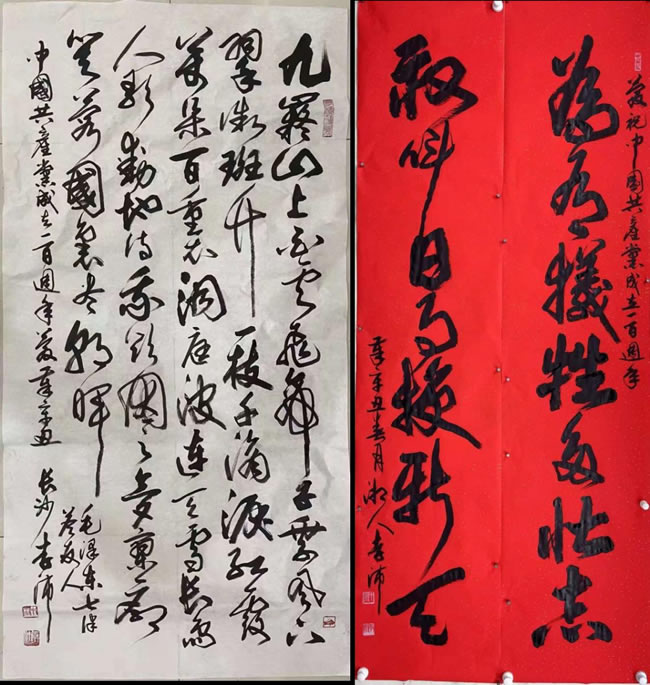 九嶷山上白云飛帝子乘风下
翠微斑竹一枝千滴淚紅霞
萬朵百重衣洞庭波连天雪长島
人歌動地诗我欲因之夢寥廓
芙蓉國里尽朝晖
毛澤东七律
答友人
中國共產黨成立一百週年慶歲辛丑
长沙李沛
慶祝中国共產黨成立一百週年
為有犧牲多壮志
敢叫日月换新天
歲辛丑春月湘人李沛